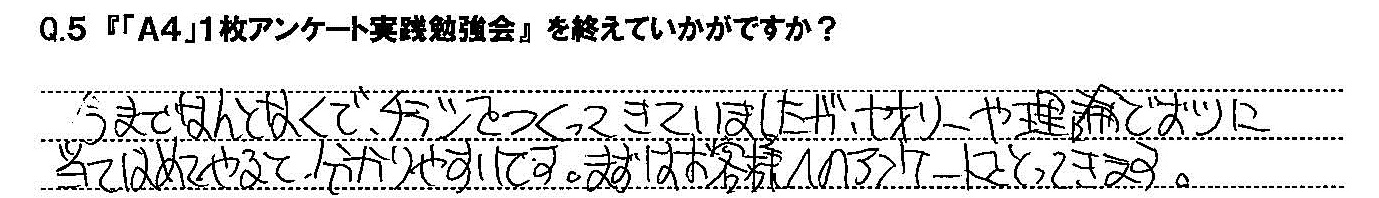 Q.5 『「A4」1枚アンケート実践勉強会』を終えていかがですか?
今まではなんとなくで、チラシをつくってきていましたが、セオリーや理論で
当てはめてやると、分かりやすいです。まずはお客様へのアンケートをとってきます。